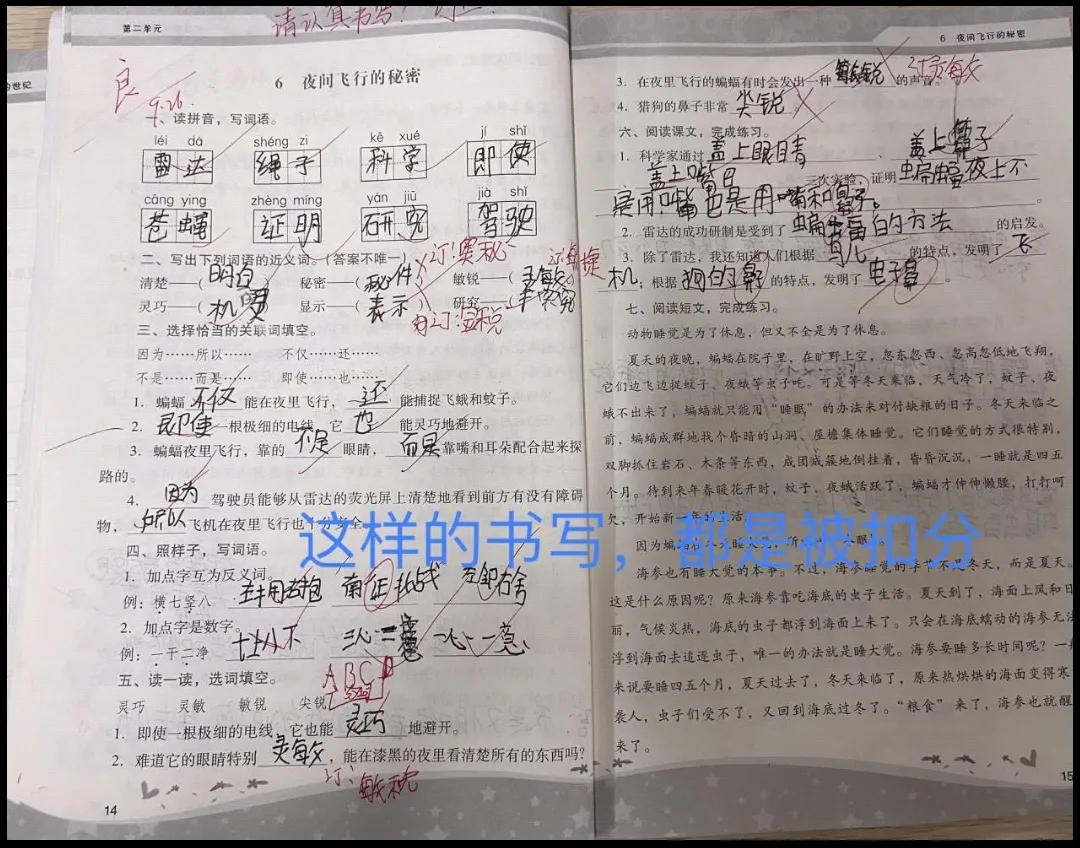 第二单元
请认真书写!
良
9.26
6 夜间飞行的秘密
一、读拼音，写词语。
léi dá shéng zi kē xué jí shǐ
雷达 绳子 科学 即使
cāng ying zhèng míng yán jiū jià shǐ
苍蝇 证明 研究 驾驶
二、写出下列词语的近义词。(答案不唯一) 订:奥秘
清楚——(明白) 秘密——(秘件) 敏锐——(灵敏) 订:敏捷
灵巧——(机灵) 显示——(表示) 研究——(
三、选择恰当的关联词填空。
因为……所以…… 不仅……还……
不是……而是…… 即使……也……
1. 蝙蝠 不仅 能在夜里飞行， 还 能捕捉飞蛾和蚊子。
2. 即使 一根极细的电线，它 也 能灵巧地避开。
3. 蝙蝠夜里飞行，靠的 不是 眼睛， 而是 靠嘴和耳朵配合起来探
路的。
4. 因为 驾驶员能够从雷达的荧光屏上清楚地看到前方有没有障碍
物， 所以 飞机在夜里飞行也十分安全
四、照样子，写词语。
1. 加点字互为反义词。
例：横七竖八 南征北战 左邻右舍
2. 加点字是数字。
例：一干二净 七上八下 三心二意 一心一意
五、读一读，选词填空。
ABCD
灵巧 灵敏 敏锐 尖锐
1. 即使一根极细的电线，它也能 灵巧 地避开。
2. 难道它的眼睛特别 灵敏 ，能在漆黑的夜里看清楚所有的东西吗？
订:敏锐
14
6 夜间飞行的秘密
3. 在夜里飞行的蝙蝠有时会发出一种 敏锐 的声音。
4. 猎狗的鼻子非常 尖锐 。
六、阅读课文，完成练习。
1. 科学家通过 盖上眼睛 、 盖上鼻子
盖上嘴巴 三次实验，证明 蝙蝠夜上不
是用嘴也是用嘴和鼻子。
2. 雷达的成功研制是受到了 蝙蝠的方法 的启发。
3. 除了雷达，我还知道人们根据 鸟儿 的特点，发明了 飞
机；根据 狗的鼻 的特点，发明了 电子鼻 。
七、阅读短文，完成练习。
动物睡觉是为了休息，但又不全是为了休息。
夏天的夜晚，蝙蝠在院子里，在旷野上空，忽东忽西、忽高忽低地飞翔，
它们边飞边捉蚊子、夜蛾等虫子吃。可是等冬天来临，天气冷了，蚊子、夜
蛾不出来了，蝙蝠就只能用“睡眠”的办法来对付缺粮的日子。冬天来临之
前，蝙蝠成群地找个昏暗的山洞、屋檐集体睡觉。它们睡觉的方式很特别，
双脚抓住岩石、木条等东西，成团成簇地倒挂着，昏昏沉沉，一睡就是四五
个月。待到来年春暖花开时，蚊子、夜蛾活跃了，蝙蝠才伸伸懒腰，打打呵
欠，开始新一年的生活
这样的书写，都是被扣分
因为蝙蝠 睡 所 眠
海参也有睡大觉的本事。不过，海参睡觉的季节不是冬天，而是夏天。
这是什么原因呢？原来海参靠吃海底的虫子生活。夏天到了，海面上风和日
丽，气候炎热，海底的虫子都浮到海面上来了。只会在海底蠕动的海参无法
浮到海面去追逐虫子，唯一的办法就是睡大觉。海参要睡多长时间呢？一般
来说要睡四五个月，夏天过去了，冬天来临了，原来热烘烘的海面变得寒气
袭人，虫子们受不了，又回到海底过冬了。“粮食”来了，海参也就醒
来了。
15